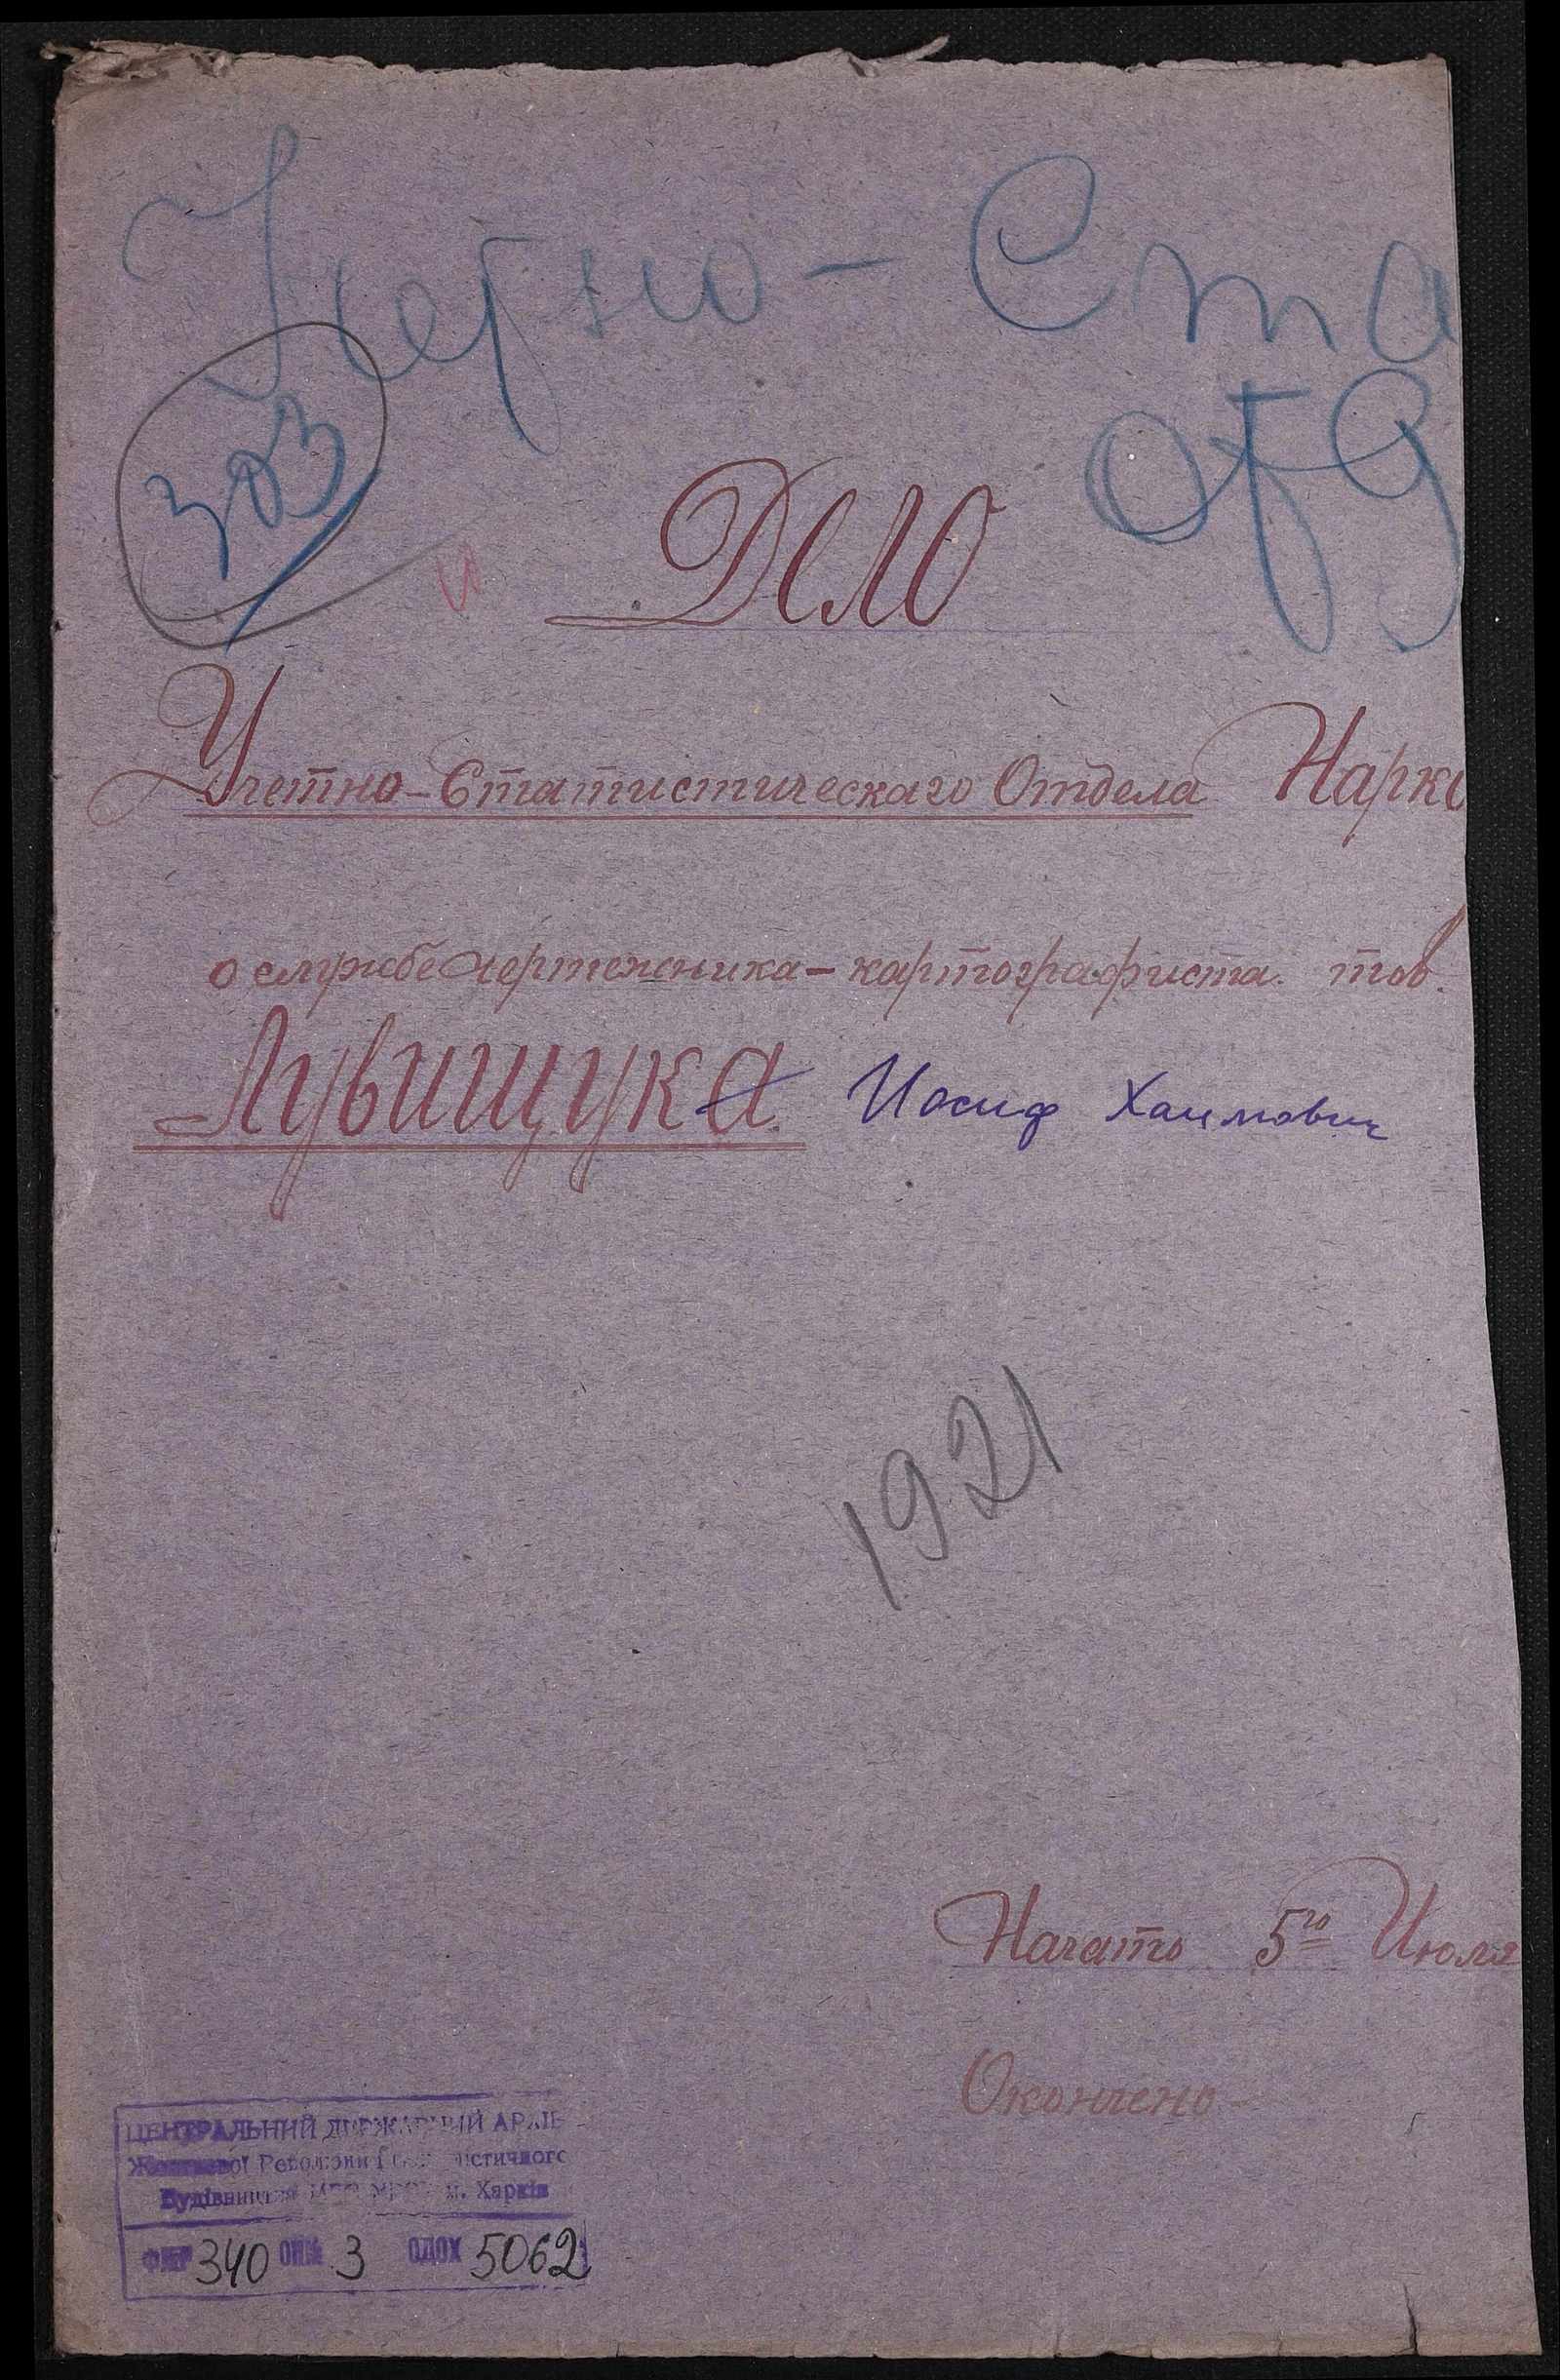 Учетно-Ста
отд
303
Дело
Учетно-Статистическаго Отдела Нарко
о службе чертежника-картографиста тов.
Лувищука Иосиф Хаимович
1921
Начато 5го Июля
Окончено
ЦЕНТРАЛЬНИЙ ДЕРЖАВНИЙ АРХІВ
Жовтневої Революції і соціалістичного
Будівництва м. Харків
340 3 5062